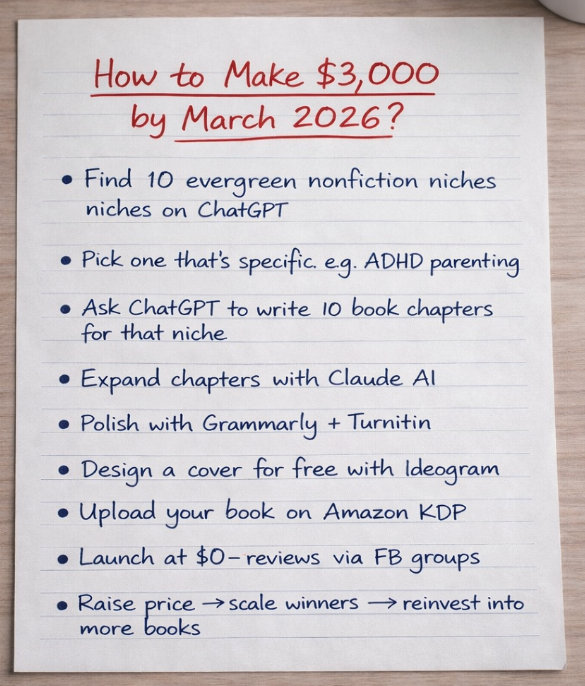 How to Make $3,000
by March 2026?
• Find 10 evergreen nonfiction niches
niches on ChatGPT
• Pick one that's specific. e.g. ADHD parenting
• Ask ChatGPT to write 10 book chapters
for that niche
• Expand chapters with Claude AI
• Polish with Grammarly + Turnitin
• Design a cover for free with Ideogram
• Upload your book on Amazon KDP
• Launch at $0 – reviews via FB groups
• Raise price → scale winners → reinvest into
more books